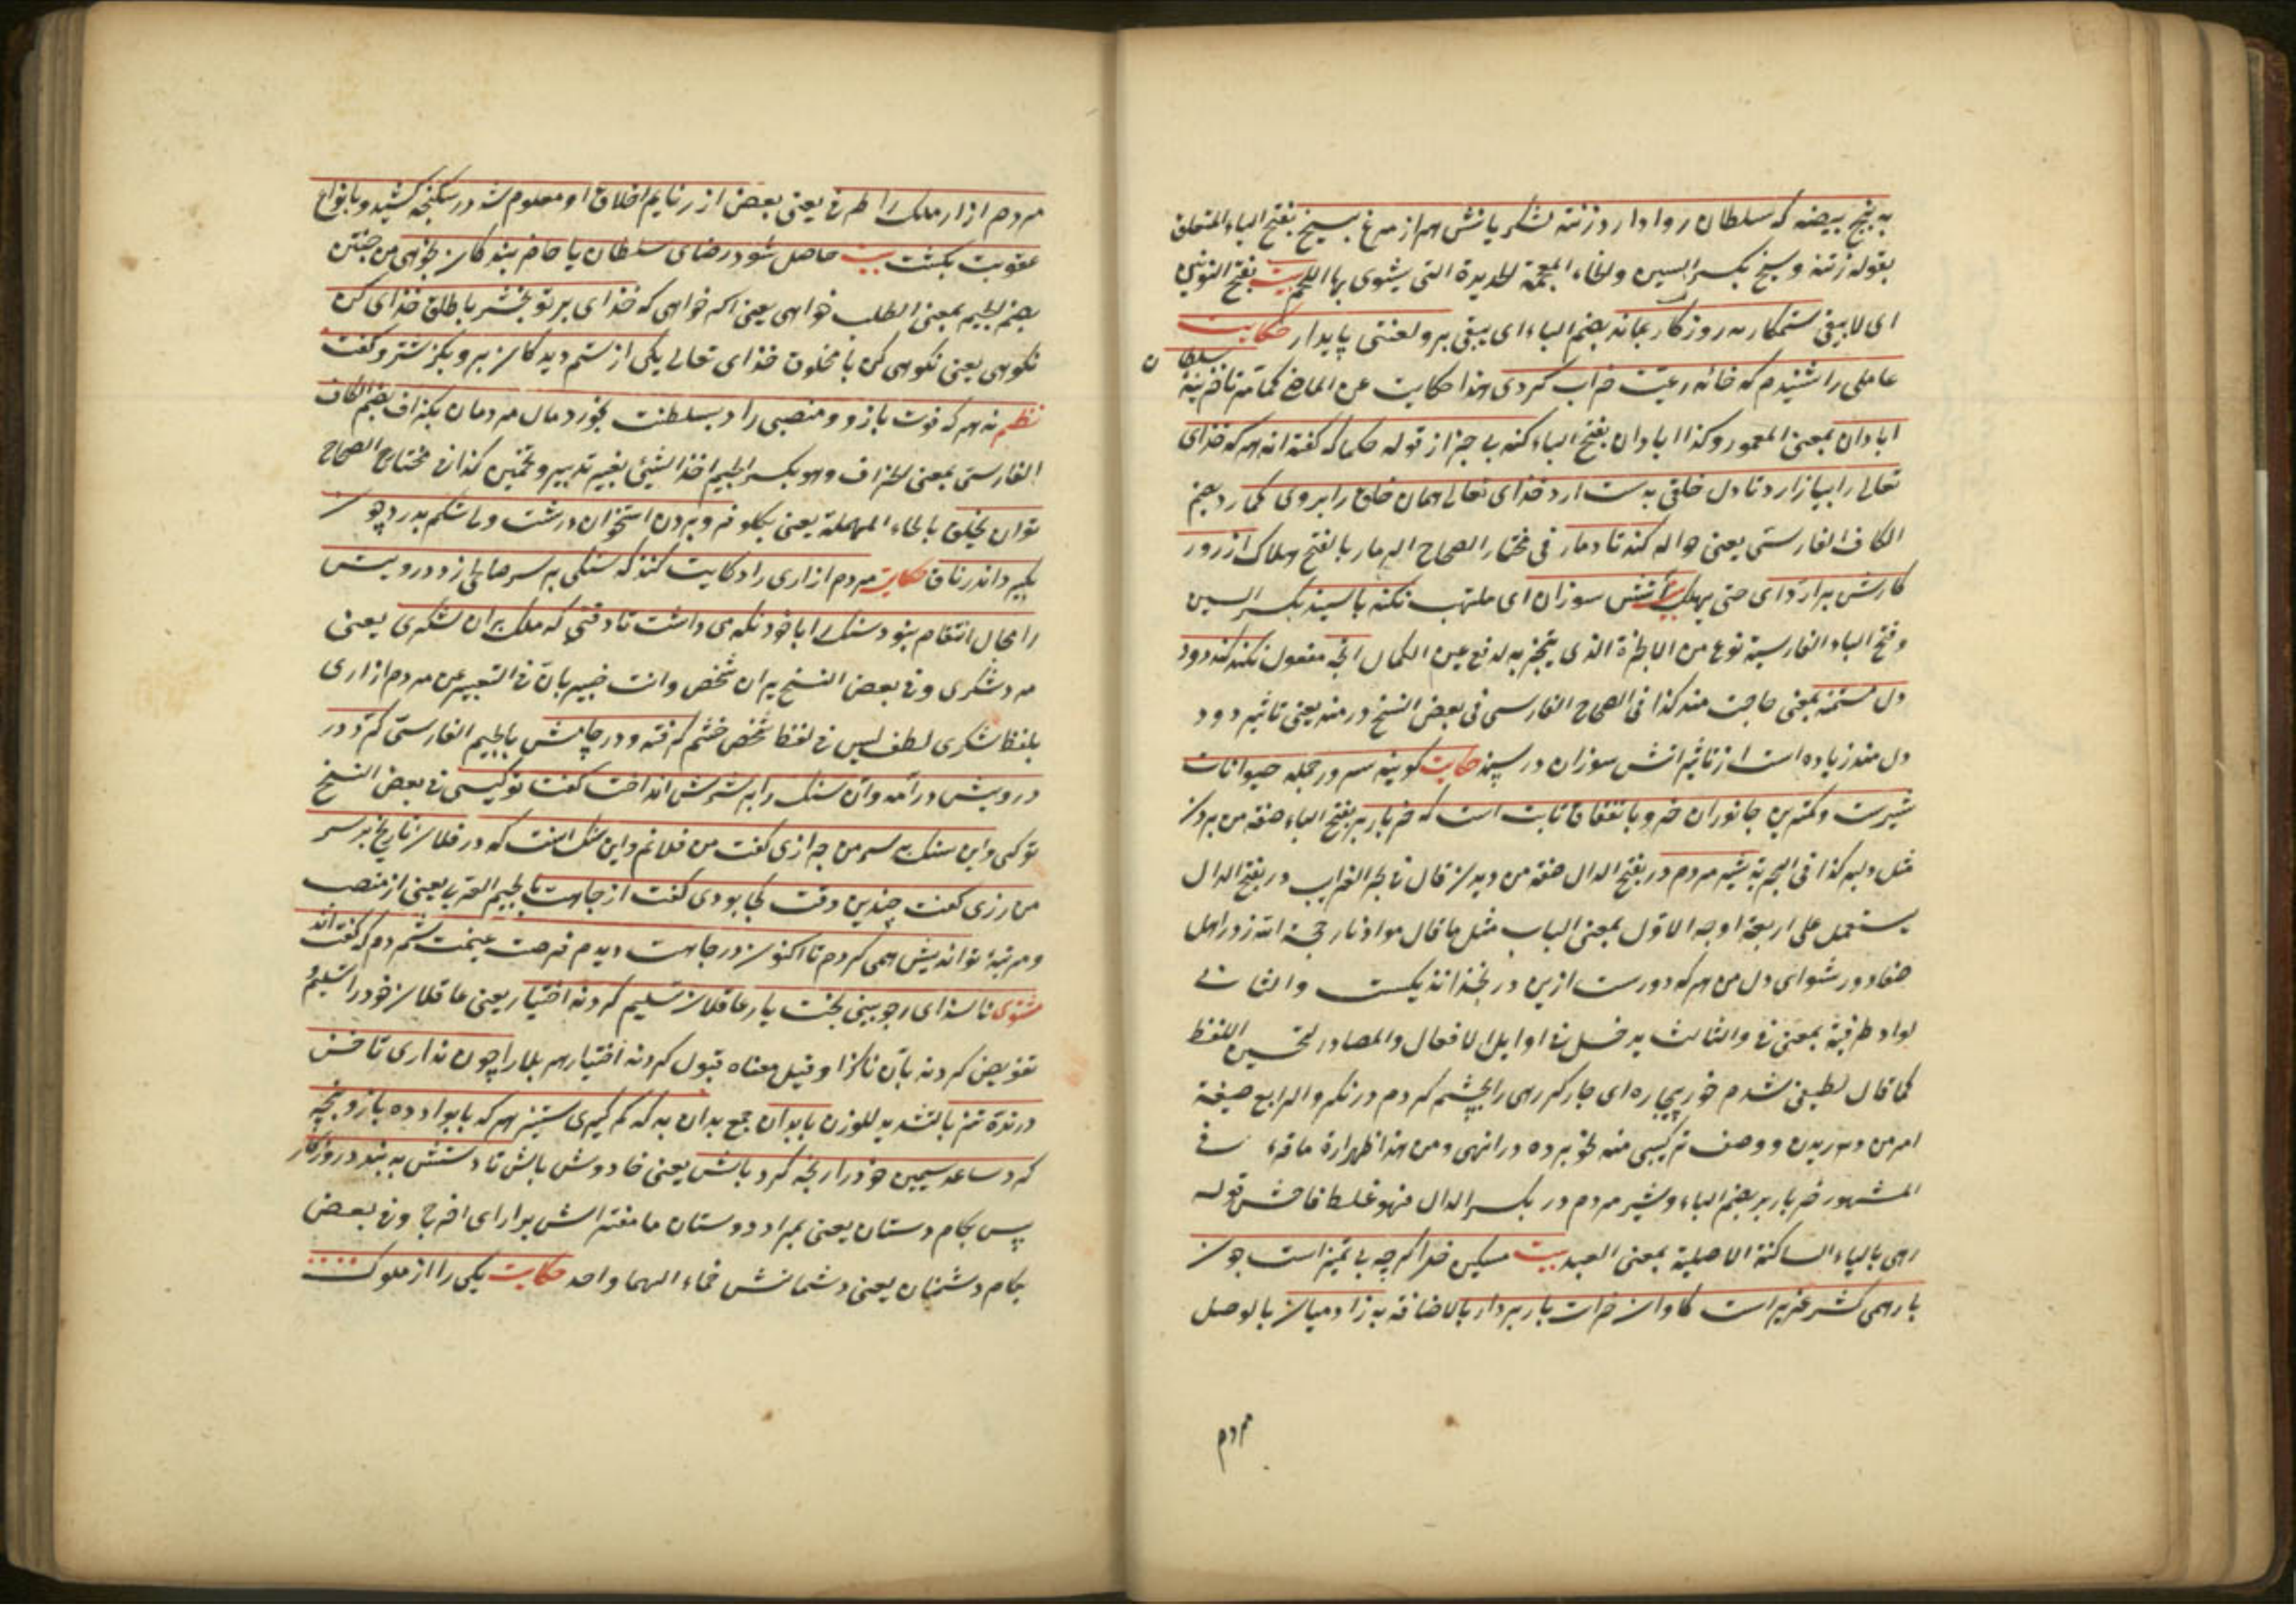 به پنج بیضه که سلطان روا دارد زنند لشکریانش هزار مرغ بسیخ بفتح الباء المتعلق
بقوله زنند وسیخ بکسر السین والخاء المعجمة الحدیدة التی یشوی بها اللحم بیت بفتح النون
ای لا یبقی ستمکار بد روزگار بماند بضم الباء ای یبقی برو لعنتی پایدار حکایت
عاملی را شنیدم که خانه رعیت خراب کردی هذا حکایت عن الماضی کما مر تا خزینهٔ سلطان
ابادان بمعنی المعمور وکذا ابادان بفتح الباء کند بی خبر از قول حکما که گفته اند هر که خدای
تعالی را بیازارد تا دل خلقی بدست ارد خدای تعالی همان خلق را بروی گمارد بضم
الکاف الفارسی یعنی حواله کند تا دمار فی مختار الصحاح الدمار بالفتح الهلاک از روزگارش
برارد ای حتی یهلک بیت آتش سوزان ای ملتهب نکند با سپند بکسر السین
وفتح الباء الفارسیة نوع من الابزرة الذی یتبخر به لدفع عین الکمال انچه مفعول نکند کند دود
دل مستمند بمعنی حاجت مند کذا فی الصحاح الفارسی فی بعض النسخ دردمند یعنی تاثیر دود
دل مند زیاده است از تاثیر اتش سوزان در سپند حکایت گویند سرور جمله حیوانات
شیرست وکمترین جانوران خر وباتفاق ثابت است که خر باربر بفتح الباء صفة من بردن
مثل دلبر کذا فی البحریة به شیر مردم در بفتح الدال صفة من دریدن قال فی بحر الغرایب در بفتح الدال
یستعمل علی اربعة اوجه الاول بمعنی الباب مثل ما قال مولانا
دور شو ای دل من هر که دورست ازین در بخدا نزدیکست والثانی
لواد ظرفیة بمعنی فی والثالث یدخل فی اوایل الافعال والمصادر لتحسین اللفظ
کما قال لطیفی شدم والرابع صیغة
امر من دریدن ووصف ترکیبی منه نحو پرده در انتهی ومن هذا ظهر ان ما قرء فی
المشهور خر باربر بضم الباء وشیر مردم در بکسر الدال فهو غلط فاحش قوله
رهی بالیاء الساکنة الاصلیة بمعنی العبد بیت مسکین خر اگرچه بی تمیز است چون
بار همی کشد عزیز است گاوان وخران باربردار بالاضافة به زادمیان بالوصل
مردم
مردم ازار ملک را طرفی یعنی بعض از رذایم اخلاق او معلوم شد در شکنجه کشید وبانواع
عقوبت بکشت بیت حاصل نشود رضای سلطان یا خاطر بندگان نجوئی من جستن
بضم الجیم بمعنی الطلب خواهی یعنی اگر خواهی که خدای بر تو بخشد با خلق خدای کن
نکوئی یعنی نکوئی کن با مخلوق خدای تعالی یکی از ستم دیدگان برو بگذشت وگفت
نظم نه هر که قوت بازو ومنصبی دارد بسلطنت بخورد مال مردمان بگزاف بضم الکاف
الفارسی بمعنی الجزاف وهو بکسر الجیم اخذ الشیئ بغیر تدبیر وتخمین کذا فی مختار الصحاح
توان بحلق بالحاء المهملة یعنی بگلو فرو بردن استخوان درشت ولی شکم بدرد چون
بگیرد اندر ناف حکایت مردم ازاری را حکایت کنند که سنگی بر سر صالحی زد درویش
را مجال انتقام نبود سنک را با خود نگه می داشت تا وقتی که ملک بران لشکری یعنی
مرد لشکری وفی بعض النسخ بران شخص وانت خبیر بان فی التعبیر عن مردم ازاری
بلفظ لشکری لطف لیس فی لفظ شخص خشم گرفته ودر چاهش بالجیم الفارسی کرد در
درویش درآمد وآن سنک را بر سرش انداخت گفت تو کیستی فی بعض النسخ
تو کی واین سنک بر سر من چرا زدی گفت من فلانم واین سنک انست که در فلان تاریخ بر سر
من زدی گفت چندین وقت کجا بودی گفت از جاهت بالجیم العربی یعنی از منصب
ومرتبهٔ تو اندیش همی کردم تا اکنون در چاهت دیدم فرصت غنیمت شمردم که گفته اند
مثنوی ناسزای را چو بینی بخت یار عاقلان تسلیم کردند اختیار یعنی عاقلان خود را تسلیم
تفویض کردند بآن ناسزا وقیل معناه قبول کردند اختیار هر بلا را چون نداری ناخن
درندهٔ تیز بالتشدید للوزن با بدان جمع بدان به که کم گیری ستیز هر که با پولاد بازو پنجه
کرد ساعد سیمین خود را رنجه کرد باش یعنی خاموش باش تا دستش ببندد روزگار
پس بکام دوستان یعنی بمراد دوستان ما مغزش برارای اخرج وفی بعض
بکام دشمنان یعنی دشمنانش حکایت یکی را از ملوک